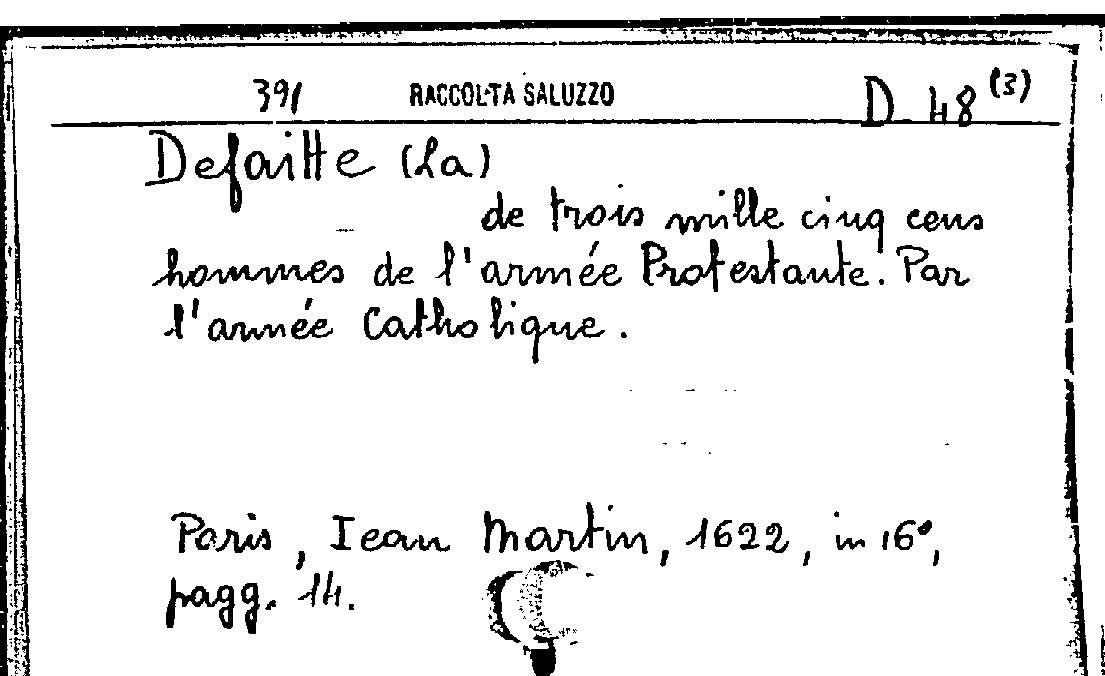 391 RACCOLTA SALUZZO D 48 (3)
Defaitte (La)
de trois mille cinq cens
hommes de l'armée Protestante. Par
l'armée Catholique.
Paris, Iean Martin, 1622, in 16°,
pagg. 14.